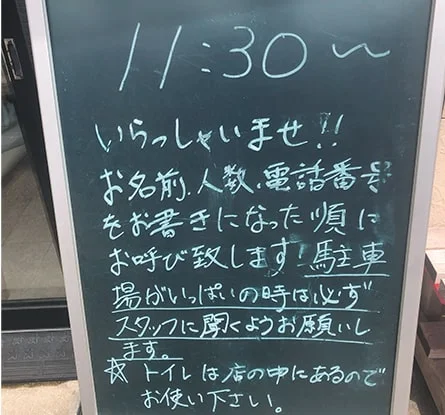 11:30〜
いらっしゃいませ!!
お名前、人数、電話番号
をお書きになった順に
お呼び致します!駐車
場がいっぱいの時は必ず
スタッフに聞くようお願いし
ます。
☆トイレは店の中にあるので
お使い下さい。